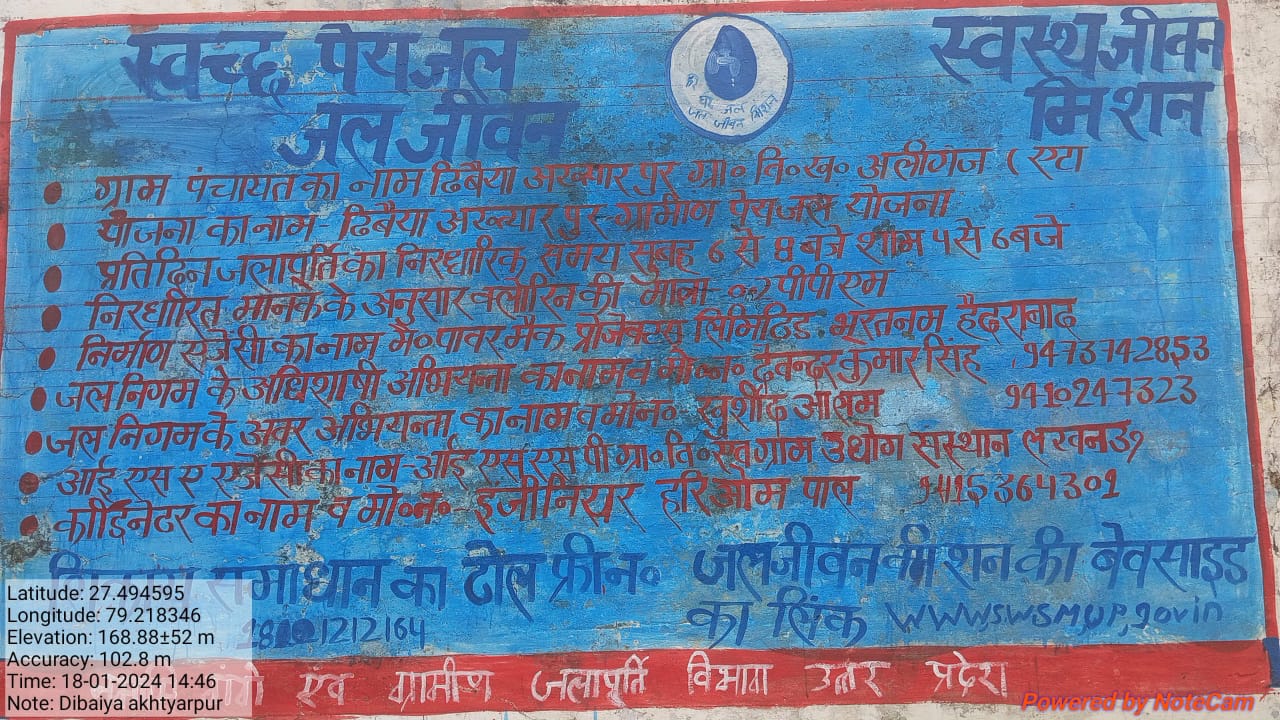 स्वच्छ पेयजल
स्वस्थ जीवन
जल जीवन
मिशन
हर घर जल
जल जीवन मिशन
ग्राम पंचायत का नाम ढिबैया अख्त्यार पुर ग्रा० वि०ख० अलीगंज ( एटा
योजना का नाम - ढिबैया अख्त्यार पुर ग्रामीण पेयजल योजना
प्रतिदिन जलापूर्ति का निरधारिक समय सुबह 6 से 8 बजे शाम 4 से 6 बजे
निरधारित मानक के अनुसार क्लोरिन की मात्रा पीपीएम
निर्माण एजेंसी का नाम मै० पावर मैक प्रोजेक्टस लिमिटिड हैदराबाद
जल निगम के अधिशाषी अभियन्ता का नाम व मो०न० देवन्दर कुमार सिंह 9473742853
जल निगम के अवर अभियन्ता का नाम व मो०न० खुर्शीद आलम 9410247323
आई एस ए एजेंसी का नाम - आई एस एस पी ग्रा० वि० एंव ग्राम उधोग संस्थान लखनऊ
कार्डिनेटर का नाम व मो०न० - इंजीनियर हरिओम पाल 9415364301
समाधान का टोल फ्री न० जल जीवन मिशन की बेवसाइड
का लिंक www,swsm,up,gov in
1212164
एंव ग्रामीण जलापूर्ति विभाग उत्तर प्रदेश
Latitude: 27.494595
Longitude: 79.218346
Elevation: 168.88±52 m
Accuracy: 102.8 m
Time: 18-01-2024 14:46
Note: Dibaiya akhtyarpur
Powered by NoteCam